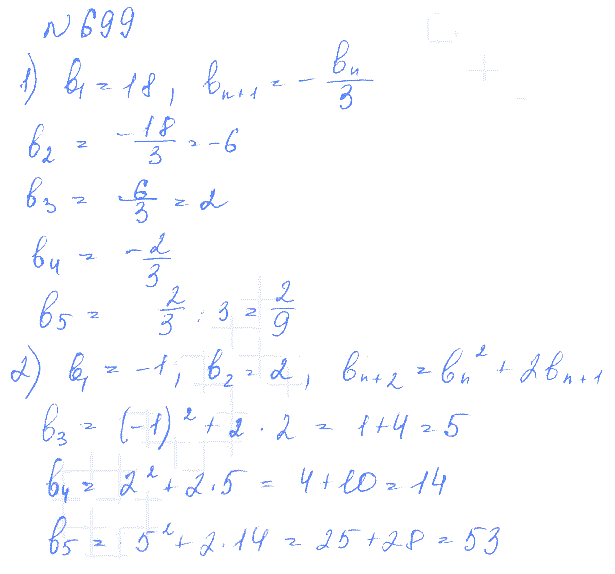 № 699
1) b₁ = 18, bₙ₊₁ = - bₙ/3
b₂ = -18/3 = -6
b₃ = 6/3 = 2
b₄ = -2/3
b₅ = 2/3 : 3 = 2/9
2) b₁ = -1, b₂ = 2, bₙ₊₂ = bₙ² + 2bₙ₊₁
b₃ = (-1)² + 2 · 2 = 1+4 = 5
b₄ = 2² + 2·5 = 4+10 = 14
b₅ = 5² + 2·14 = 25+28 = 53